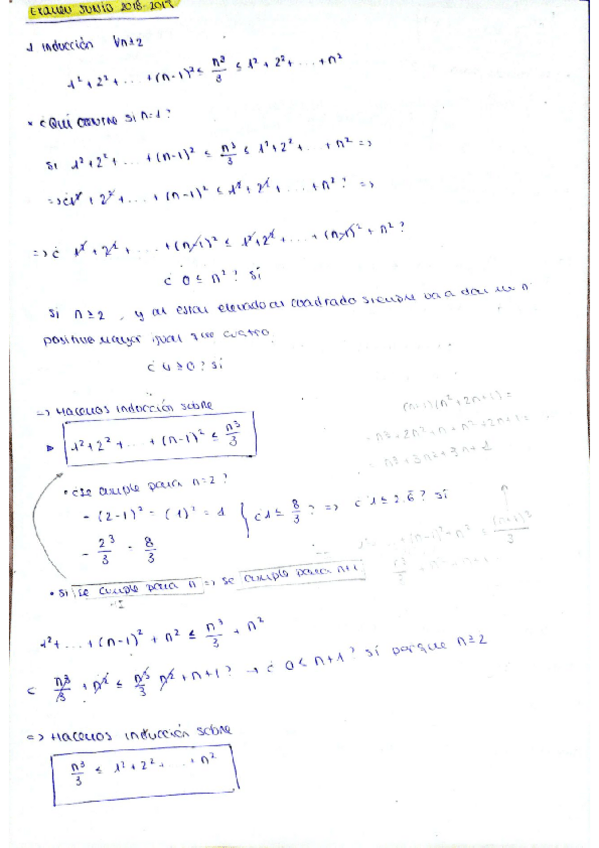 EXAMEN JUNIO 2018-2019
1 Inducción ∀n≥2
1² + 2² + ... + (n-1)² ≤ n³/3 ≤ 1² + 2² + ... + n²
¿Qué ocurre si n=1?
Si 1² + 2² + ... + (n-1)² ≤ n³/3 ≤ 1² + 2² + ... + n² =>
=> ¿1² + 2² + ... + (n-1)² ≤ 1² + 2² + ... + n²? =>
=> ¿ 1² + 2² + ... + (n-1)² ≤ 1² + 2² + ... + (n-1)² + n²?
¿ 0 ≤ n²? Sí
Si n ≥ 2, y al estar elevado al cuadrado siempre va a dar un nº
positivo mayor igual que cuatro
¿ 4 ≥ 0? Sí
=> Hacemos inducción sobre
1² + 2² + ... + (n-1)² ≤ n³/3
(n+1)(n²+2n+1) =
n³ + 2n² + n + n² + 2n + 1 =
n³ + 3n² + 3n + 1
• ¿Se cumple para n=2?
- (2-1)² = (1)² = 1 { ¿1 ≤ 8/3? => ¿ 1 ≤ 2,6? Sí
- 2³/3 = 8/3
• Si se cumple para n => se cumple para n+1
1² + ... + (n-1)² + n² ≤ n³/3 + n²
¿ n³/3 + n² ≤ n³/3 n² + n + 1? → ¿ 0 ≤ n+1? Sí porque n≥2
=> Hacemos inducción sobre
n³/3 ≤ 1² + 2² + ... + n²